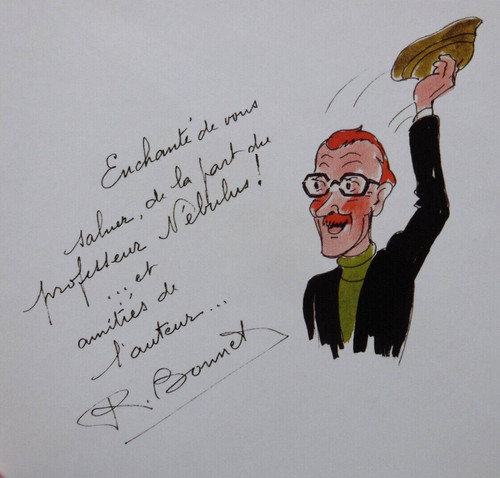 Enchanté de vous
saluer, de la part du
professeur Nébulus !
... et
amitiés de
l'auteur...
R. Bonnet